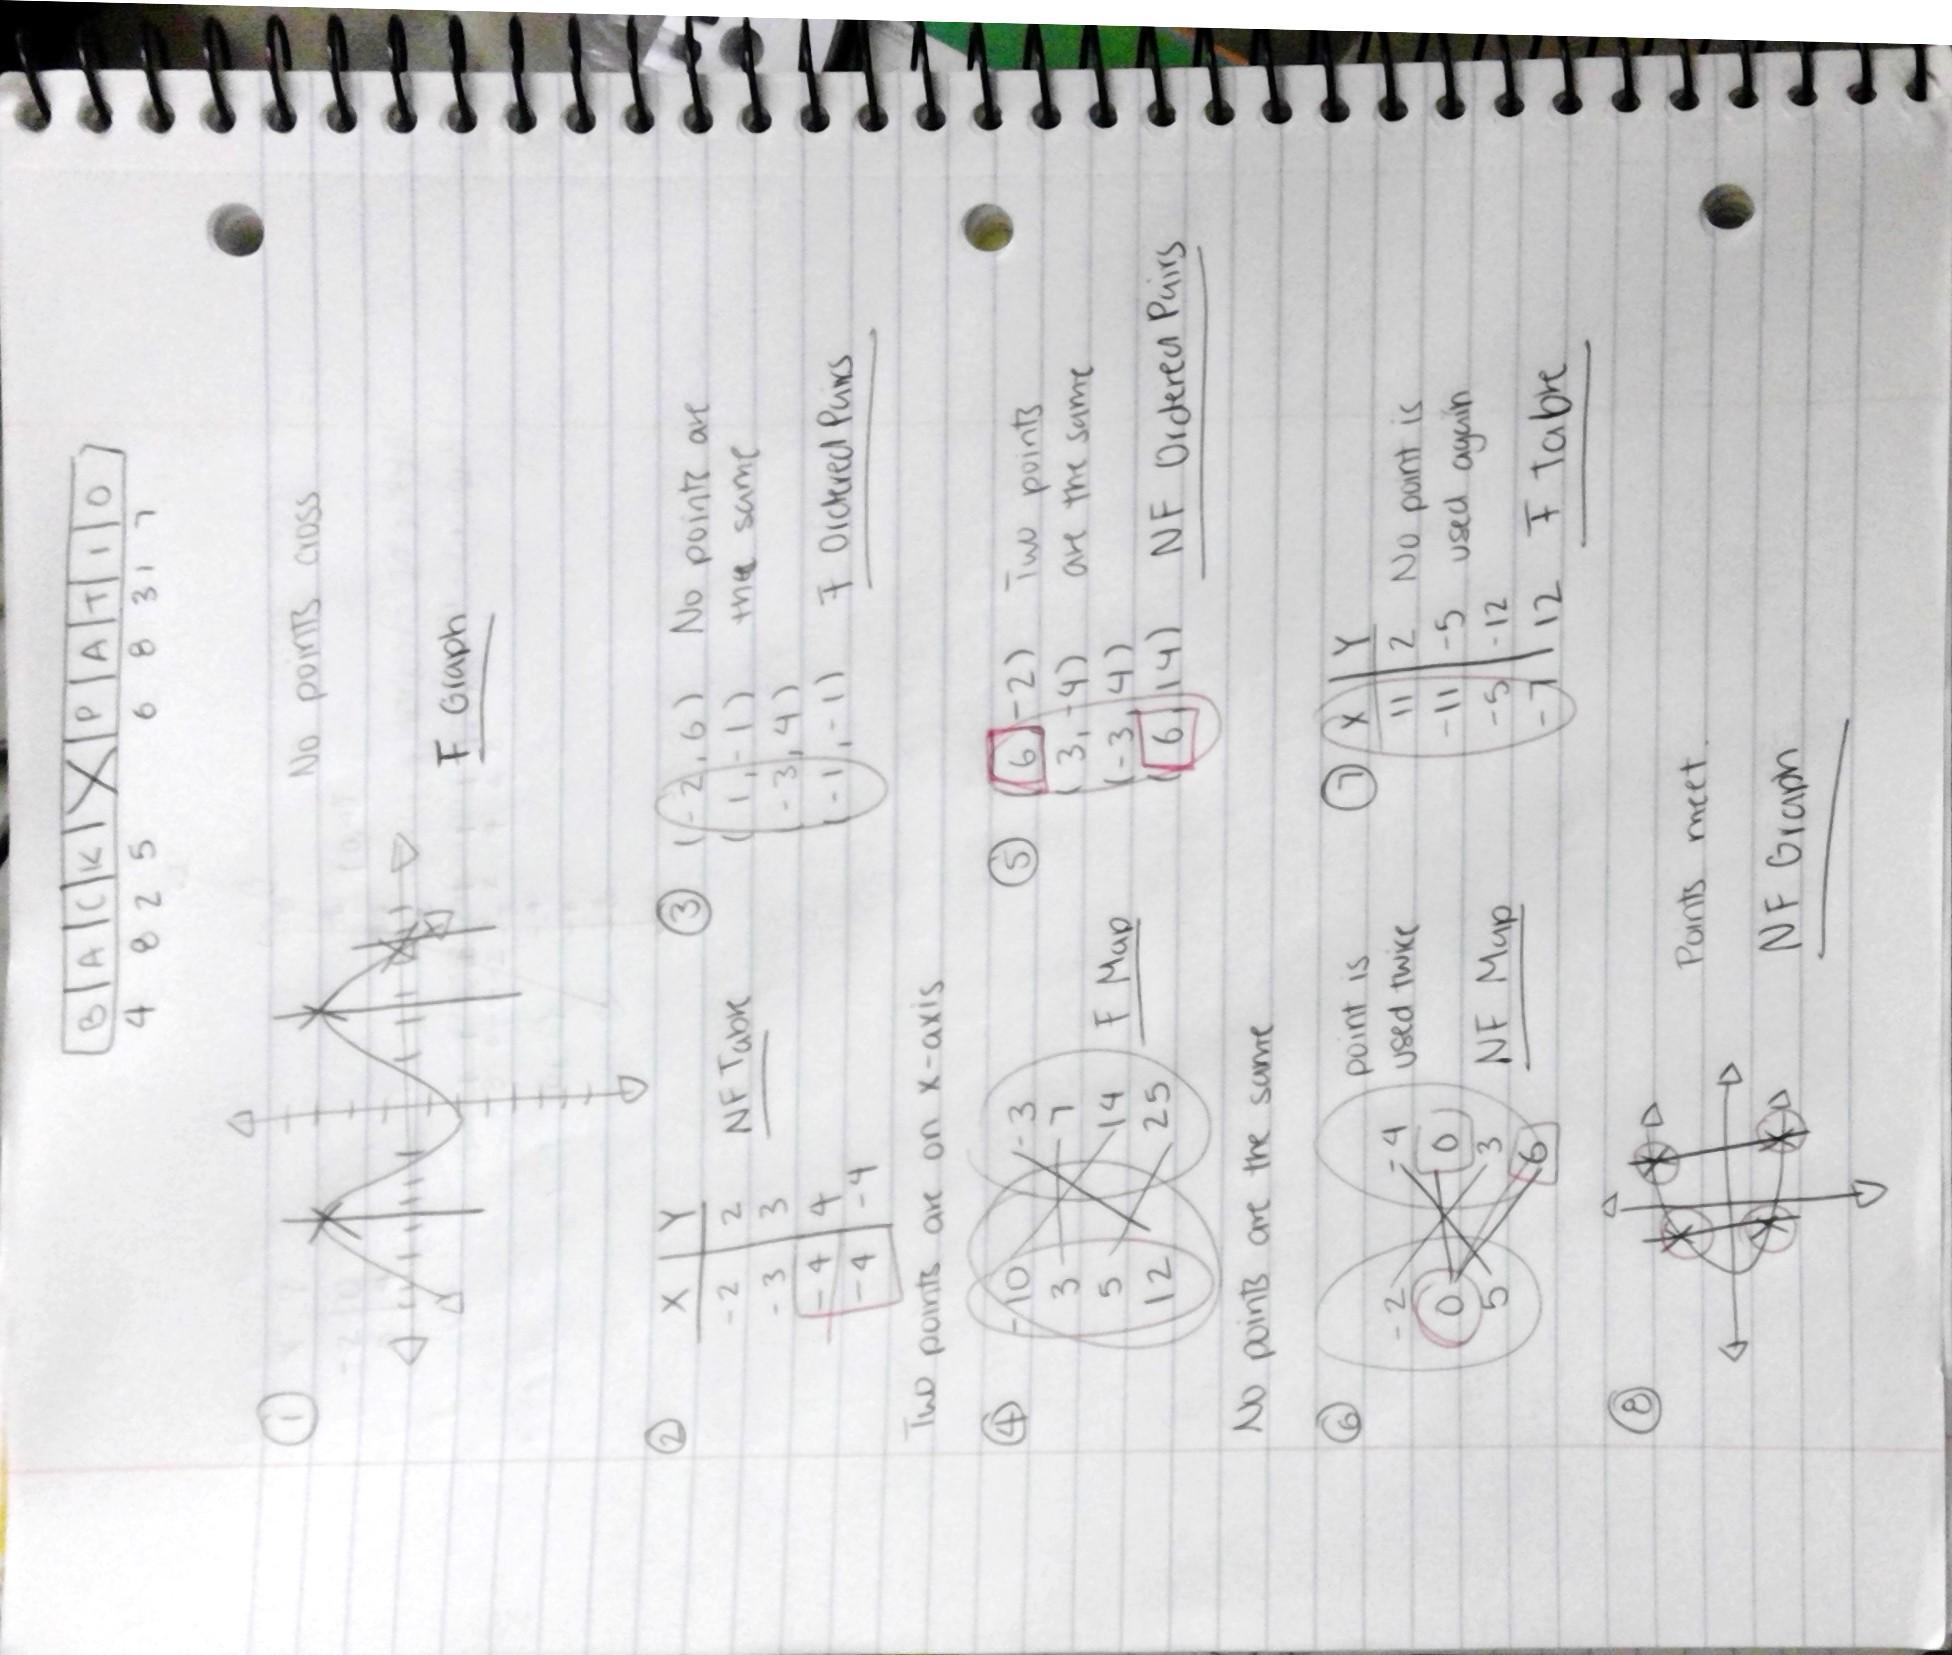 B A C K X P A T I O
4 8 2 5 6 8 3 1 7
① No points cross
F Graph
② X Y
-2 2
-3 3
-4 4
-4 -4
NF Table
Two points are on x-axis
③ (-2, 6) No points are
(1, -1) the same
(-3, 4)
(-1, -1) F Ordered Pairs
④ -10 -3
3 7
5 14
12 25
F Map
No points are the same
⑤ (6, -2) Two points
(3, -4) are the same
(-3, 4)
(6, 14) NF Ordered Pairs
⑥ -2 -4
0 0
5 3
6
point is
used twice
NF Map
⑦ X Y
11 2 No point is
-11 -5 used again
-5 -12
-7 12 F Table
⑧ Points meet.
NF Graph